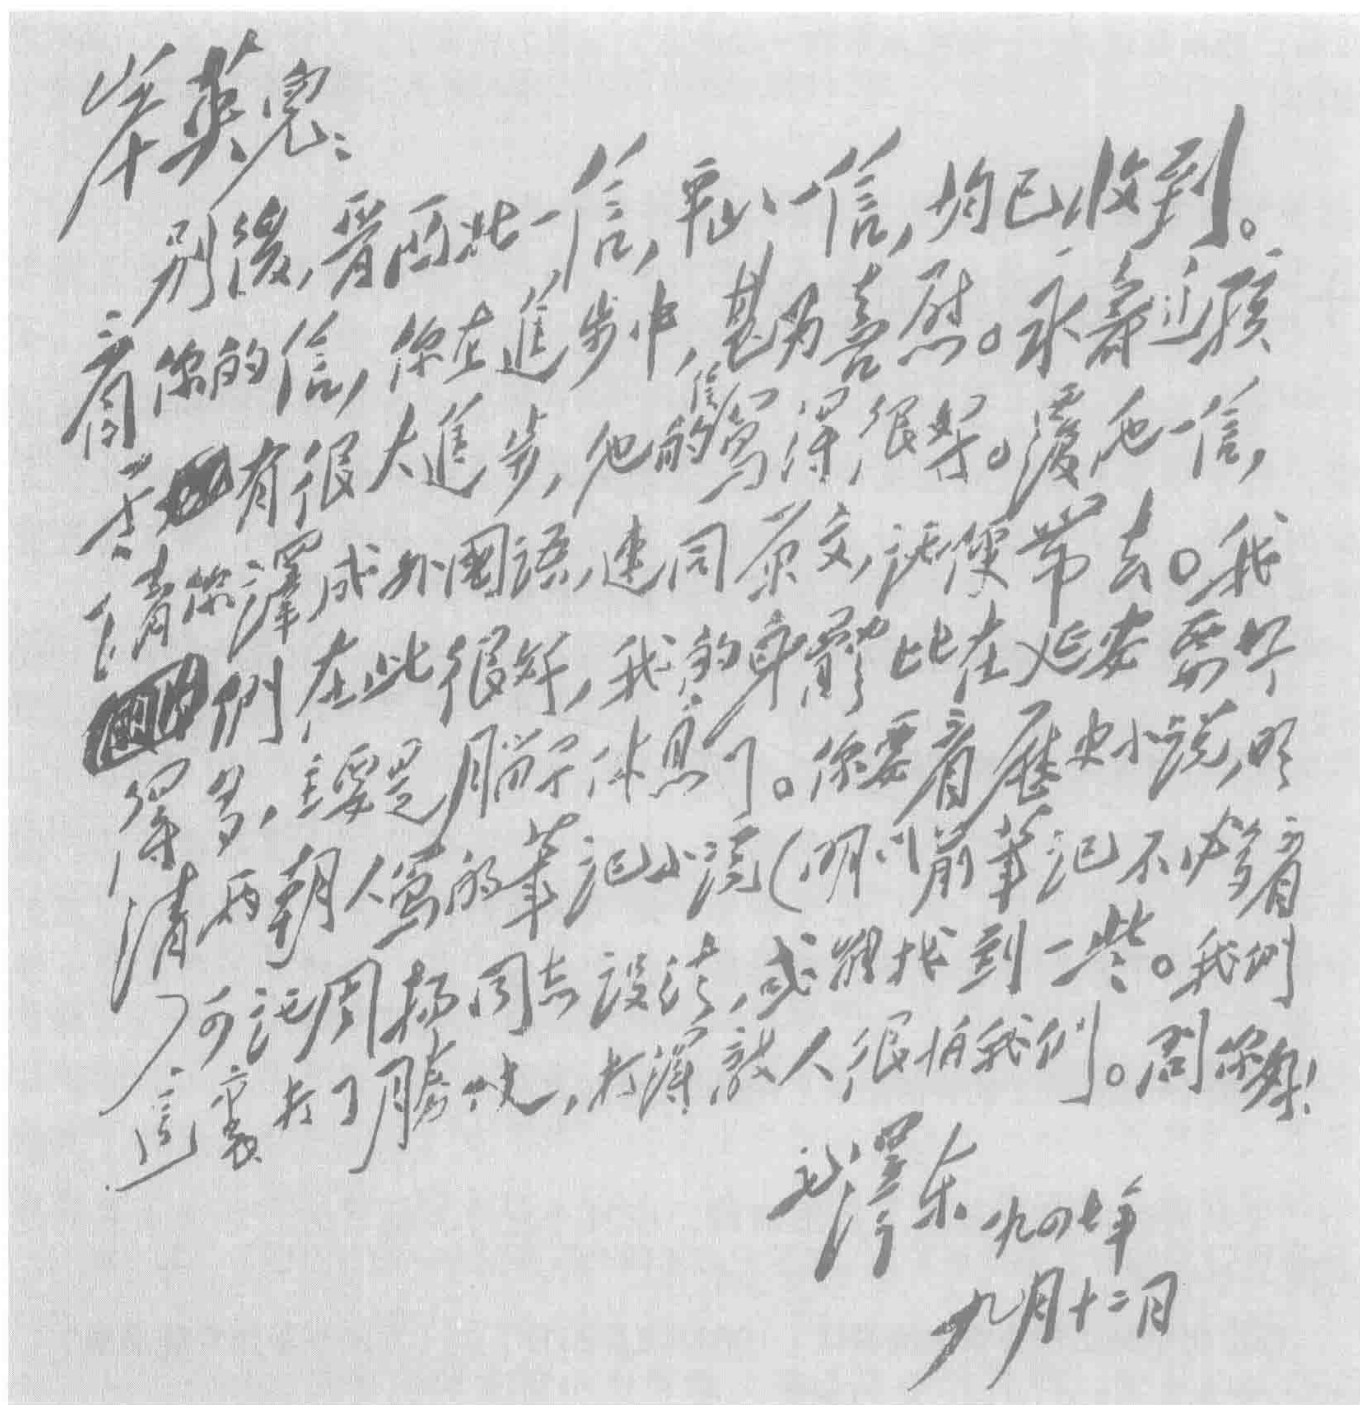 岸英兒：
別後，晋西北一信，平山一信，均已收到。
看你的信，你在進步中，甚为喜慰。永壽这孩
子有很大進步，他的信寫得很好。復他一信，
請你譯成外國語，連同原文，託便带去。我
們在此很好，我的身體比在延安要好
得多，主要是脑子休息了。你要看歷史小說，明
清两朝人寫的筆記小說（明以前筆記不必多看
），可託周揚同志設法，或能找到一些。我們
這裏打了勝仗，打得敵人很怕我們。問你好！
毛澤东
一九四七年
九月十二日